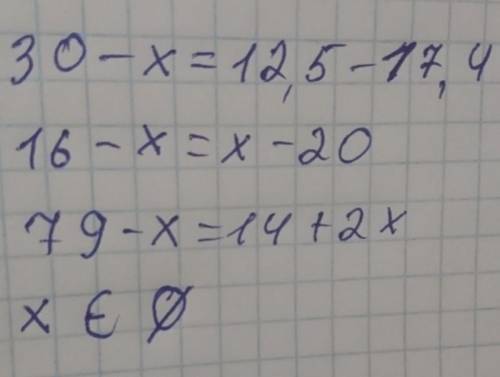 30 - x = 12,5 - 17,4
16 - x = x - 20
79 - x = 14 + 2x
x ∈ ∅